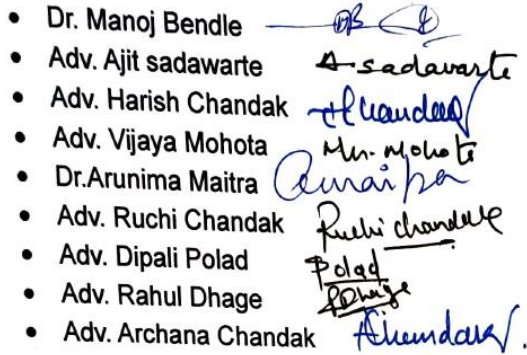 • Dr. Manoj Bendle
• Adv. Ajit sadawarte A-sadavarte
• Adv. Harish Chandak HChandak
• Adv. Vijaya Mohota Mohota
• Dr.Arunima Maitra
• Adv. Ruchi Chandak Ruchi chandak
• Adv. Dipali Polad Polad
• Adv. Rahul Dhage RDhage
• Adv. Archana Chandak AChandak.